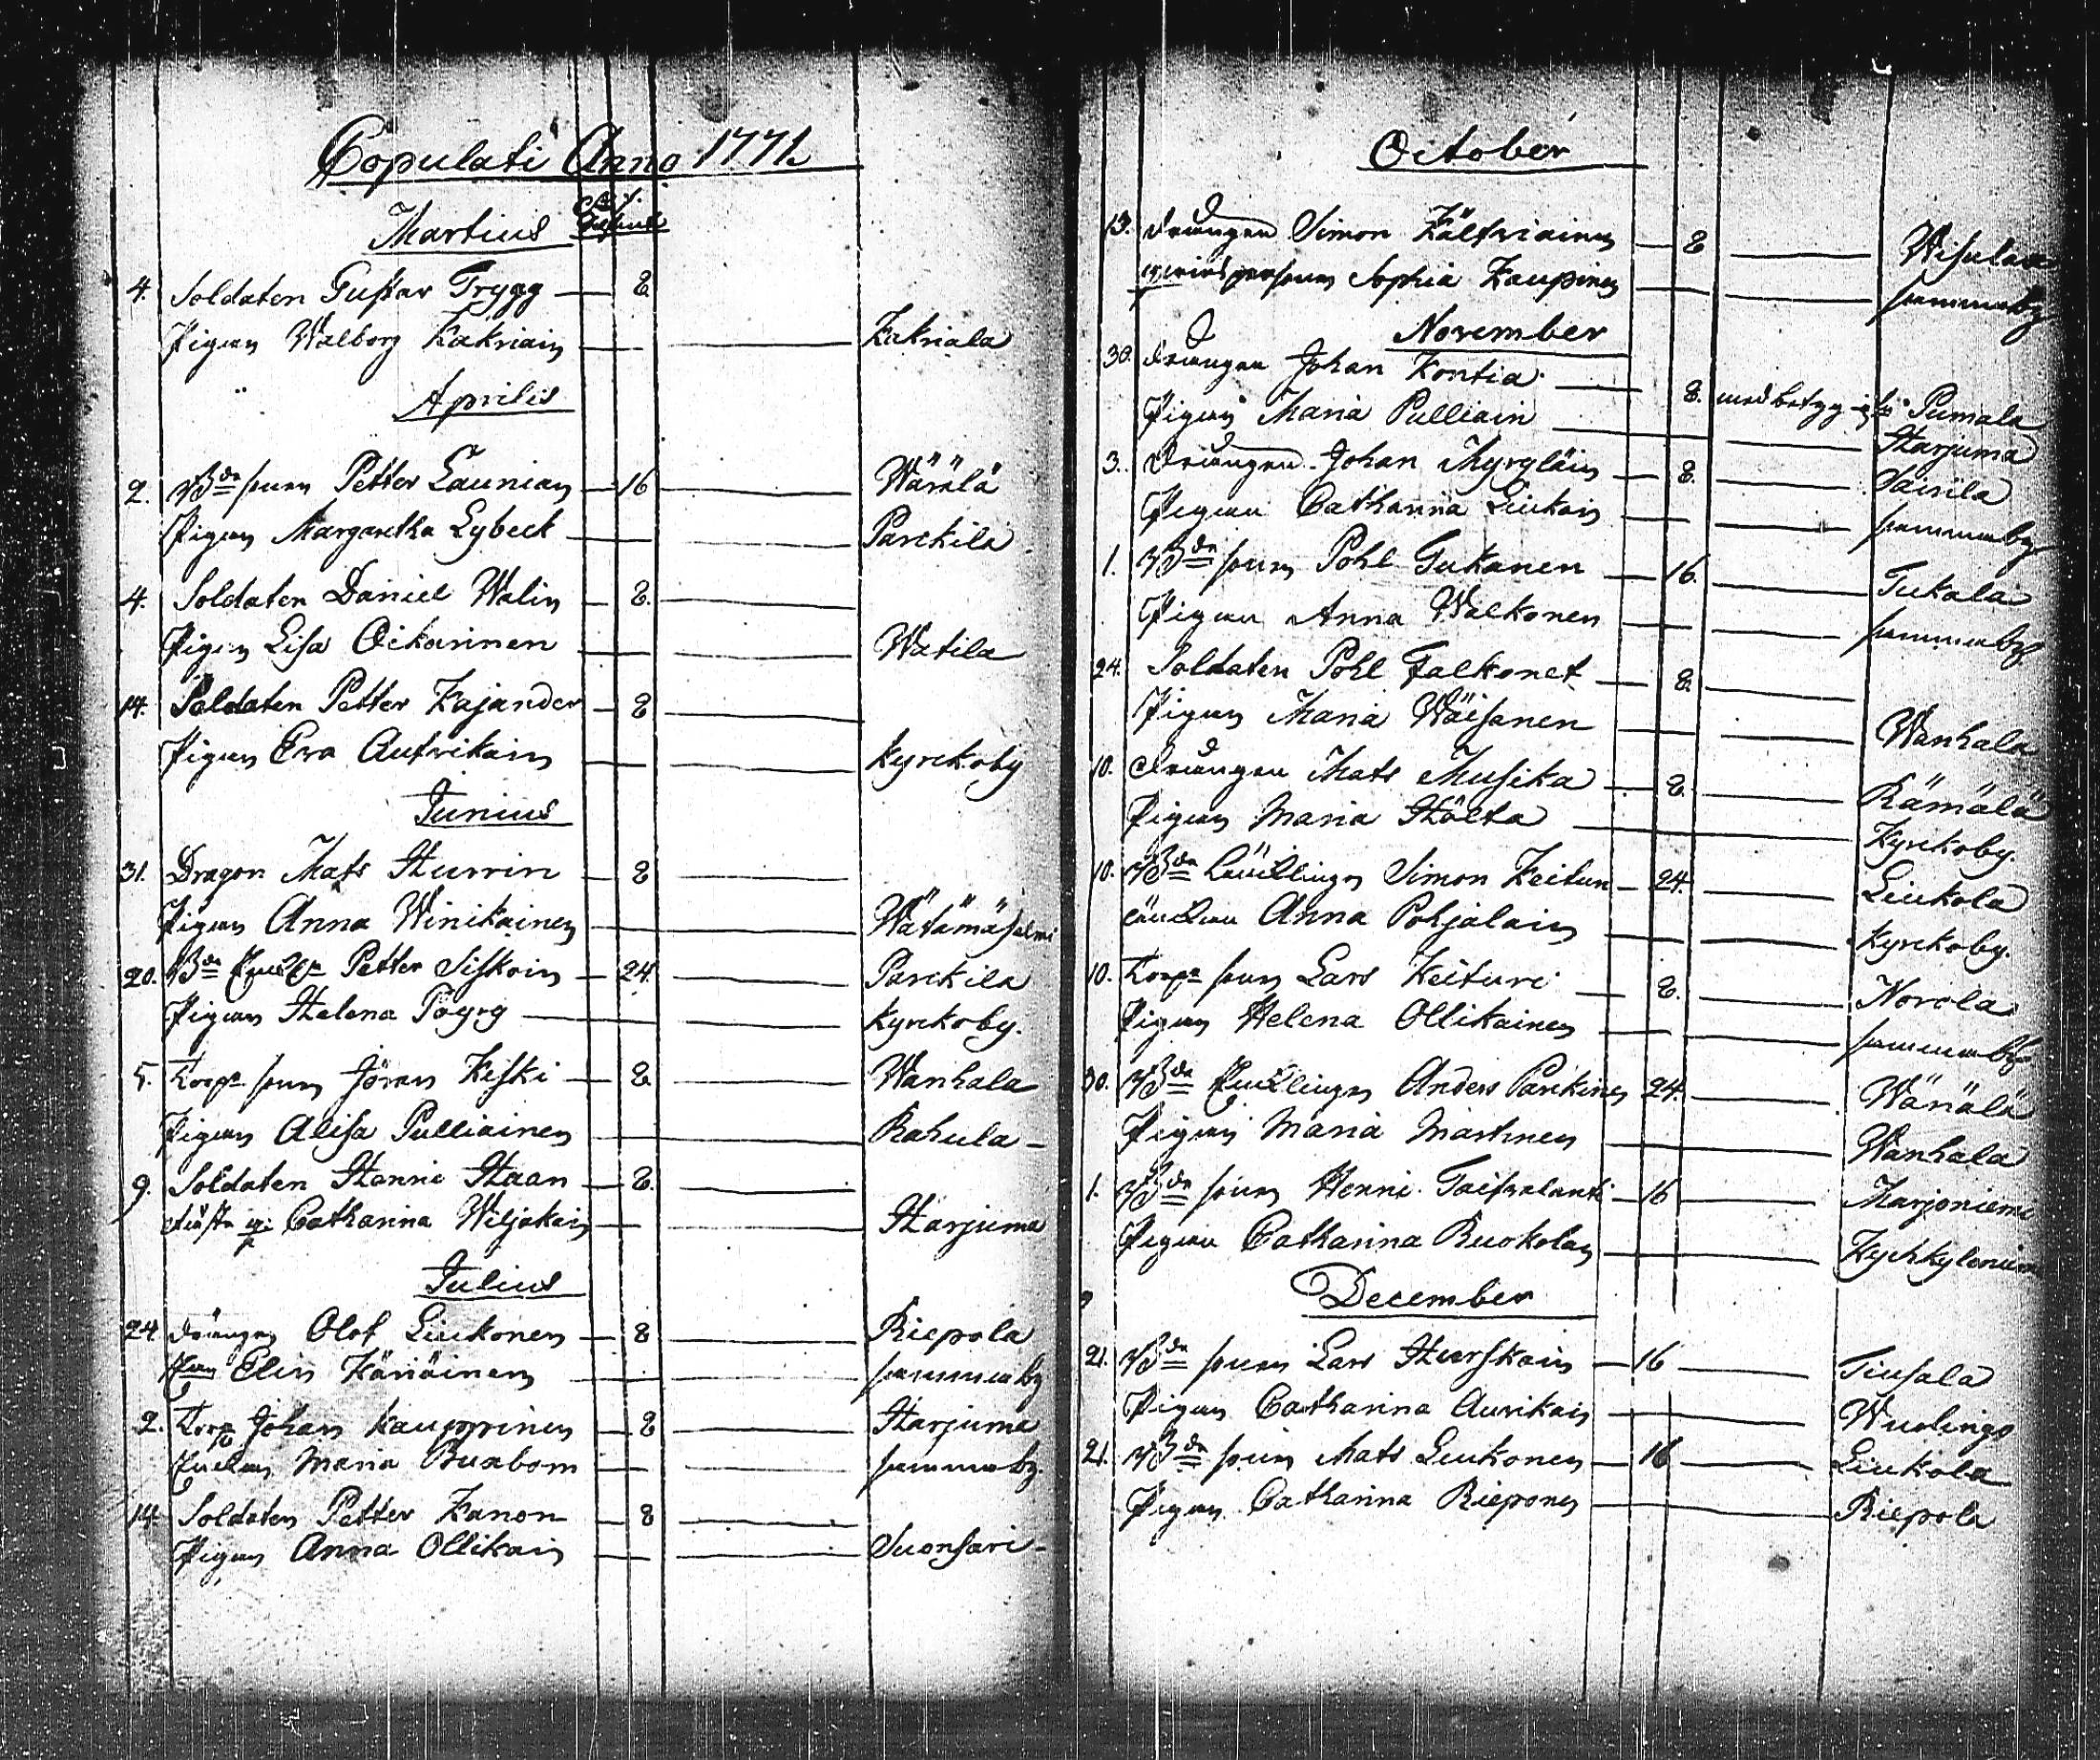 Copulati Anno 1771.
Martius
4. Soldaten Gustav Trygg — 8.
Pigan Walborg Kakriain — Kakriala
Aprilis
2. Bde sonen Petter Launian — 16 — Wärälä
Pigan Margaretha Lybeck — Parckila
4. Soldaten Daniel Walin — 8.
Pigan Lisa Oikarinen — Watila
14. Soldaten Petter Kajander — 8
Pigan Eva Autvikain — Kyrckoby
Junius
31. Dragon Mats Hurrin — 8
Pigan Anna Winikainen — Wätämäsalmi
20. Bde Petter Siskoin — 24. — Parckila
Pigan Halena Pöyry — Kyrckoby.
5. Torp sonen Jöran Keski — 8. — Wanhala
Pigan Alisa Pulliainen — Rahula —
9. Soldaten Hanni Haan — 8.
Catharina Wiljakain — Harjuma
Julius
24. drängen Olof Liukonen — 8 — Riepola
Elin Känäinen — sammaby
2. Torp Johan Kaupprinen — 8 — Harjuma
Enckan Maria Buxbom — sammaby.
14. Soldaten Petter Kanon — 8
Pigan Anna Ollikain — Suonsari —
October
13. Drängen Simon Kälfviainen — 8 — Wisulax
qwinspersonen Sophia Kaupinen — sammaby
November
30. Drängen Johan Kontia — 8. med betyg Pumala
Pigan Maria Pulliain — Harjuma
3. Drängen Johan Thyrgläin — 8. — Sairila
Pigan Catharina Liukain — sammaby
1. Bde sonen Pohl Tukanen — 16. — Tukala
Pigan Anna Walkonen — sammaby
24. Soldaten Pohl Falkonet — 8.
Pigan Maria Wäisanen — Wanhala
10. Drängen Mats Musika — 8. — Rämälä
Pigan Maria Hölta — Kyrckoby.
10. Bde Simon Keitun — 24. — Liukola
Anna Pohjalain — Kyrckoby.
10. Torp sonen Lars Keituri — 8. — Norola
Pigan Helena Ollikainen — sammaby
30. Bde Encklingen Anders Parikinen 24. — Wärälä
Pigan Maria Martinen — Wanhala
1. Bde sonen Henni Taifvalanti — 16 — Marjoniemi
Pigan Catharina Ruokolan — Kychkyloniemi
December
21. Bde sonen Lars Hurskain — 16 — Tiusala
Pigan Catharina Aurikain — Wuolingo
21. Bde sonen Mats Leukonen — 16 — Liukola
Pigan Catharina Rieponen — Riepola